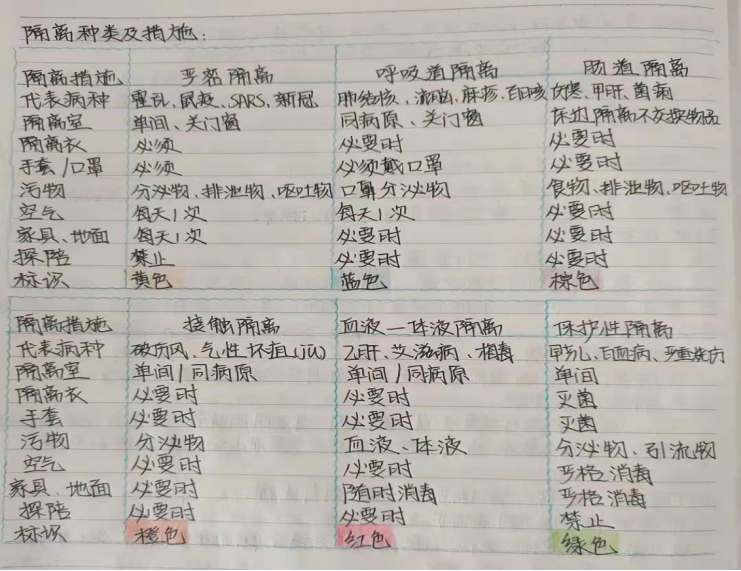 隔离种类及措施：
隔离措施 严密隔离 呼吸道隔离 肠道隔离
代表病种 霍乱、鼠疫、SARS、新冠 肺结核、流脑、麻疹、百日咳 伤寒、甲肝、菌痢
隔离室 单间、关门窗 同病原、关门窗 床边隔离不交换物品
隔离衣 必须 必要时 必要时
手套/口罩 必须 必须戴口罩 必要时
污物 分泌物、排泄物、呕吐物 口鼻分泌物 食物、排泄物、呕吐物
空气 每天1次 每天1次 必要时
家具、地面 每天1次 必要时 必要时
探陪 禁止 必要时 必要时
标识 黄色 蓝色 棕色
隔离措施 接触隔离 血液—体液隔离 保护性隔离
代表病种 破伤风、气性坏疽(jū) 乙肝、艾滋病、梅毒 早产儿、白血病、严重烧伤
隔离室 单间/同病原 单间/同病原 单间
隔离衣 必要时 必要时 灭菌
手套 必要时 必要时 灭菌
污物 分泌物 血液、体液 分泌物、引流物
空气 必要时 必要时 严格消毒
家具、地面 必要时 随时消毒 严格消毒
探陪 必要时 必要时 禁止
标识 橙色 红色 绿色